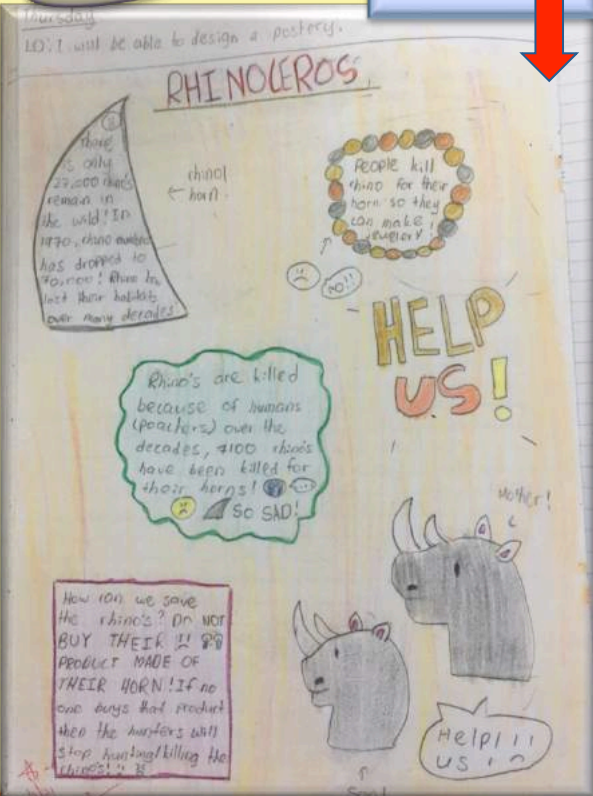 Thursday
LO: I will be able to design a postery.
RHINOCEROS
There
is only
27,000 rhino's
remain in
the wild! In
1970, rhino number
has dropped to
70,000! Rhino has
lost their habitats
over many decades!
rhino!
horn.
People kill
rhino for their
horn so they
can make
jewelery!
NO!!
HELP
US!
Rhino's are killed
because of humans
(poachers) over the
decades, 7100 rhino's
have been killed for
their horns!
SO SAD!
Mother!
How can we save
the rhino's? Do NOT
BUY THEIR
PRODUCT MADE OF
THEIR HORN! If no
one buys that product
then the hunters will
stop hunting/killing the
rhino's!
Help!!!
US!